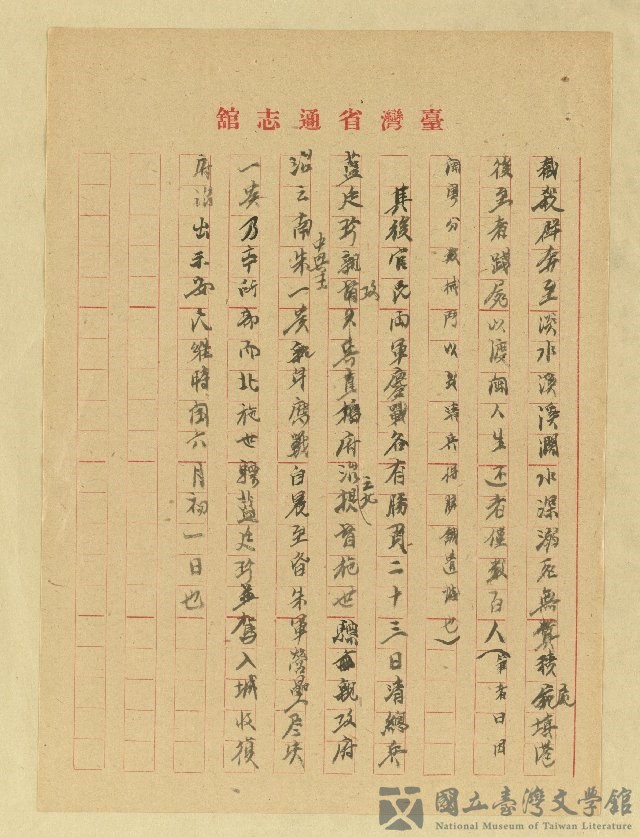 臺灣省通志館
截殺群奔至淡水溪溪濶水深溺死無算積屍填港
後至者踐屍以渡閩人生還者僅數百人(筆者曰因
閩粤分裂械鬥以致清兵得勝餘遺憾也)
其後官民兩軍鏖戰各有勝負二十三日清總兵
藍廷珍親督大兵直搗府治提督施世驃亦親攻府
治云南朱一貴親身應戰自晨至昏朱軍營壘尽失
一貴乃率所部而北施世驃藍廷珍並駕入城收復
府治出示安民維時閏六月初一日也
國立臺灣文學館
National Museum of Taiwan Literature